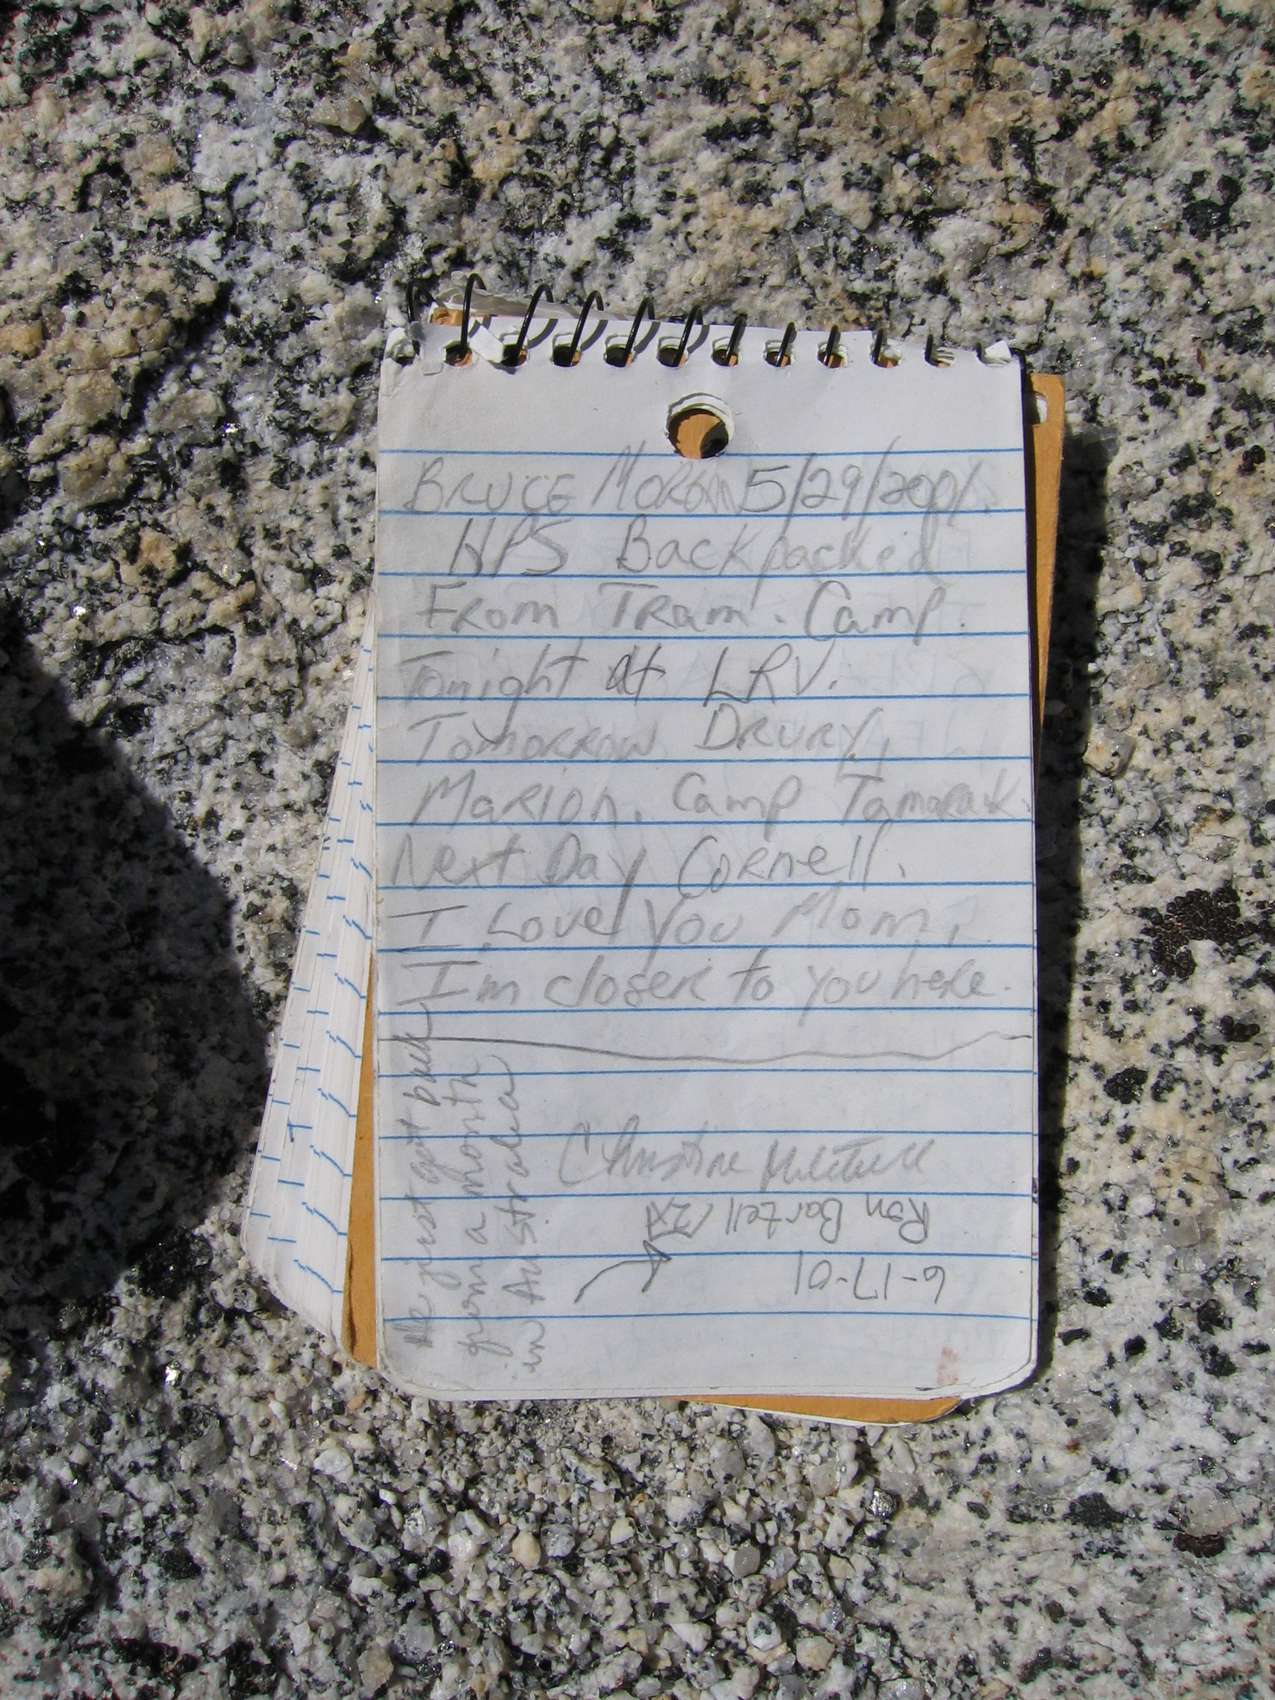 BRUCE MORAN 5/29/2001.
HPS Backpacked
FROM TRAM. Camp.
Tonight at LRV.
TOMORROW DRURY,
MARION. Camp Tamarack.
Next Day Cornell.
I Love You Mom,
I'm closer to you here.
He just got back
from a month
in Australia
Christine
Ron Bartell
6-17-01